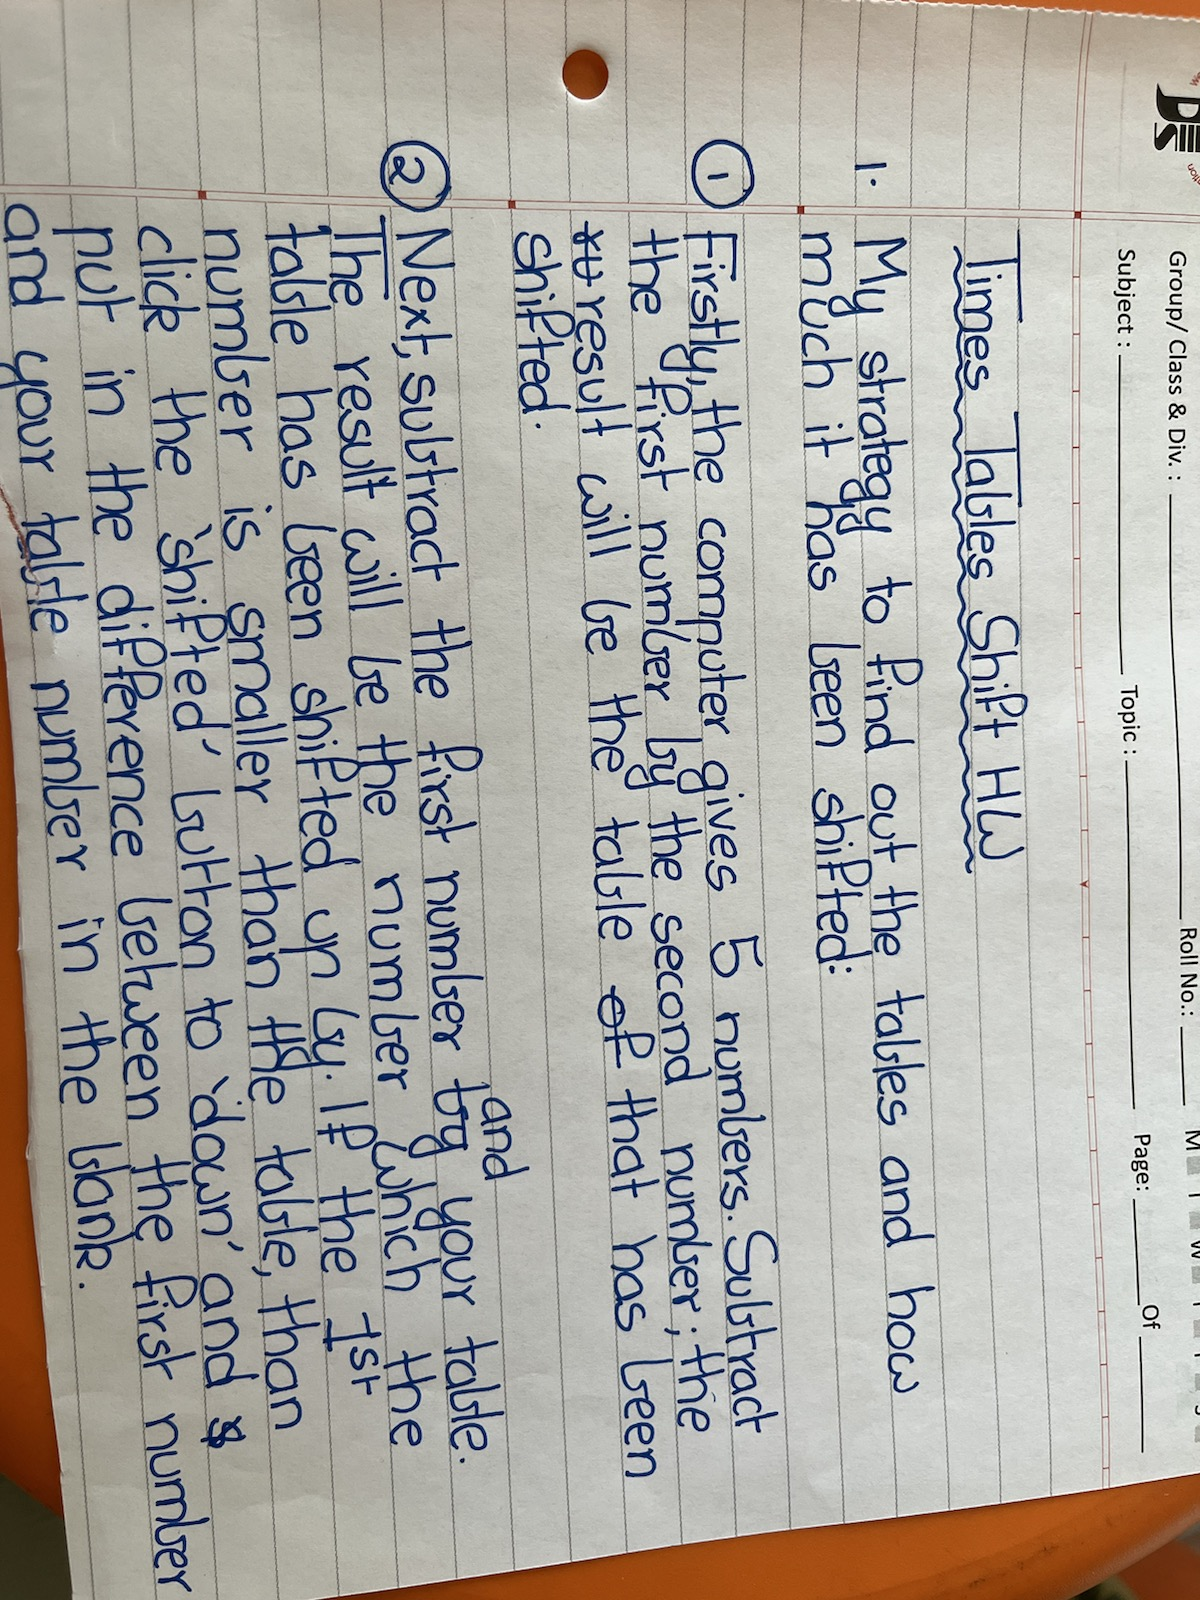 Group/ Class & Div. : Roll No.: M
Subject : Topic : Page: Of
Times Tables Shift HW
1. My strategy to find out the tables and how
much it has been shifted:
① Firstly, the computer gives 5 numbers. Subtract
the first number by the second number; the
result will be the table of that has been
shifted.
② Next, subtract the first number by and your table.
The result will be the number which the
table has been shifted up by. If the 1st
number is smaller than the table, than
click the 'shifted' button to 'down' and
put in the difference between the first number
and your table number in the blank.